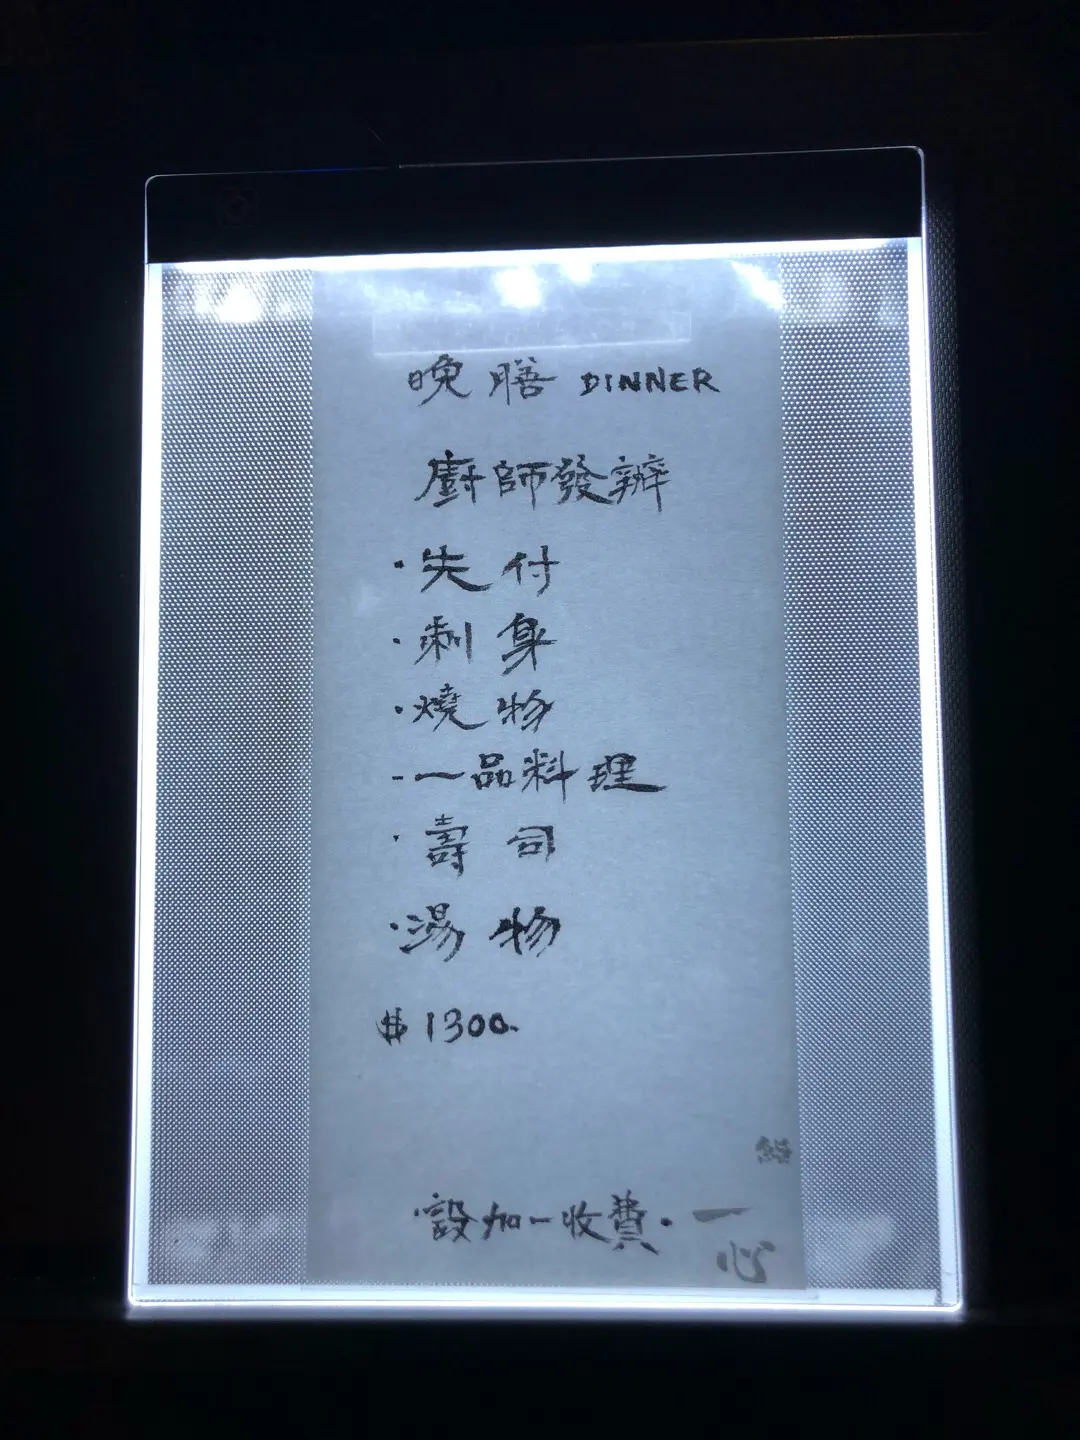 晚膳 DINNER
廚師發辦
·先付
·刺身
·燒物
-一品料理
·壽司
·湯物
$1300.
·設加一收費.
鮨
一
心